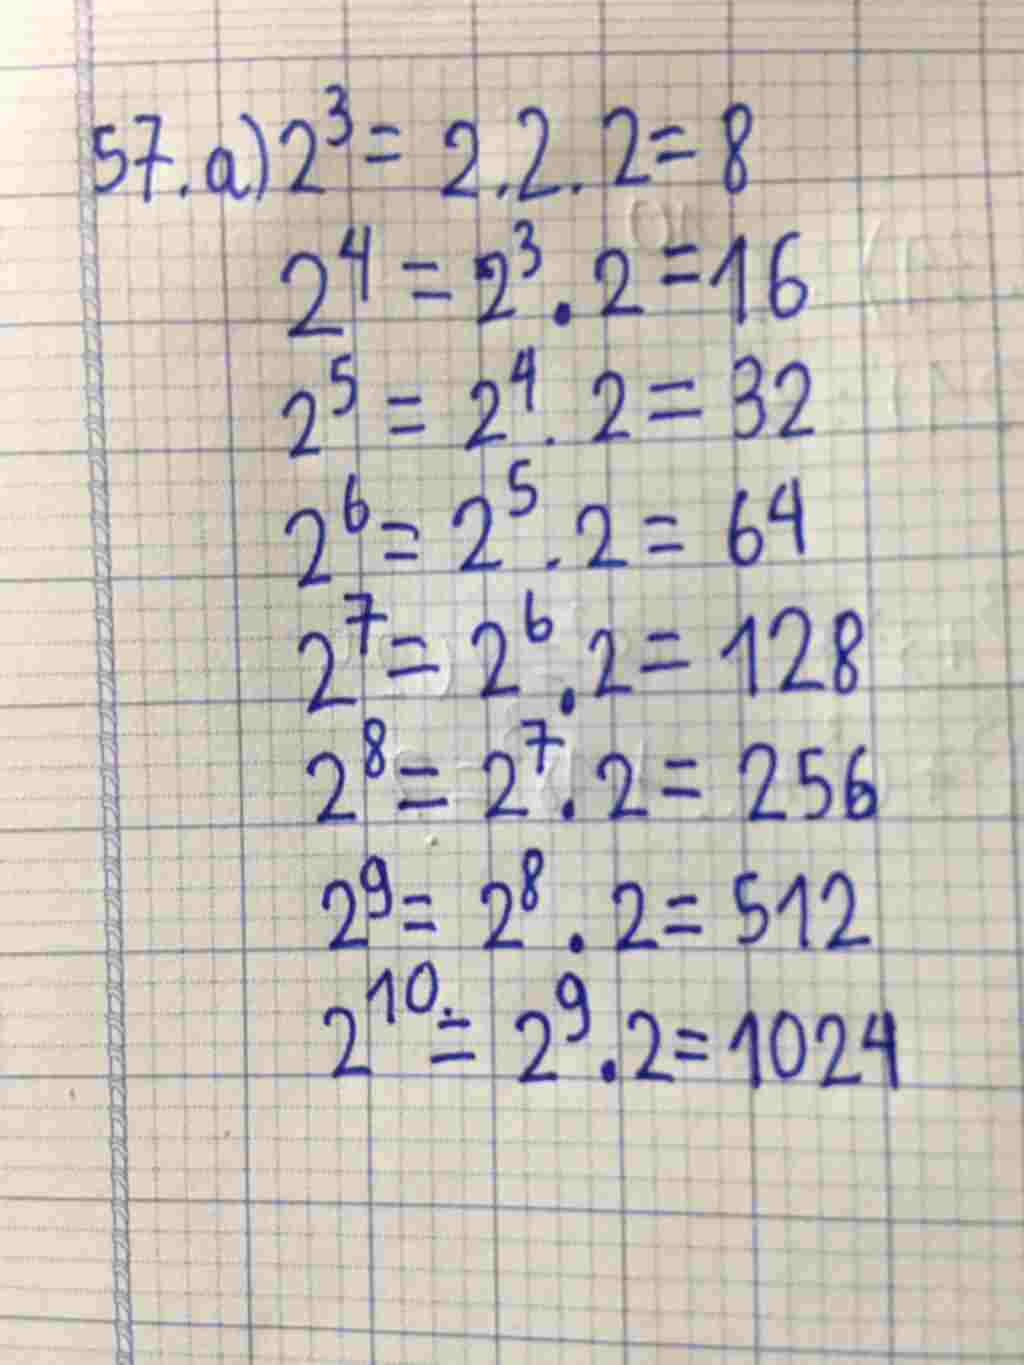 57.a) 2³ = 2.2.2 = 8
2⁴ = 2³.2 = 16
2⁵ = 2⁴.2 = 32
2⁶ = 2⁵.2 = 64
2⁷ = 2⁶.2 = 128
2⁸ = 2⁷.2 = 256
2⁹ = 2⁸.2 = 512
2¹⁰ = 2⁹.2 = 1024